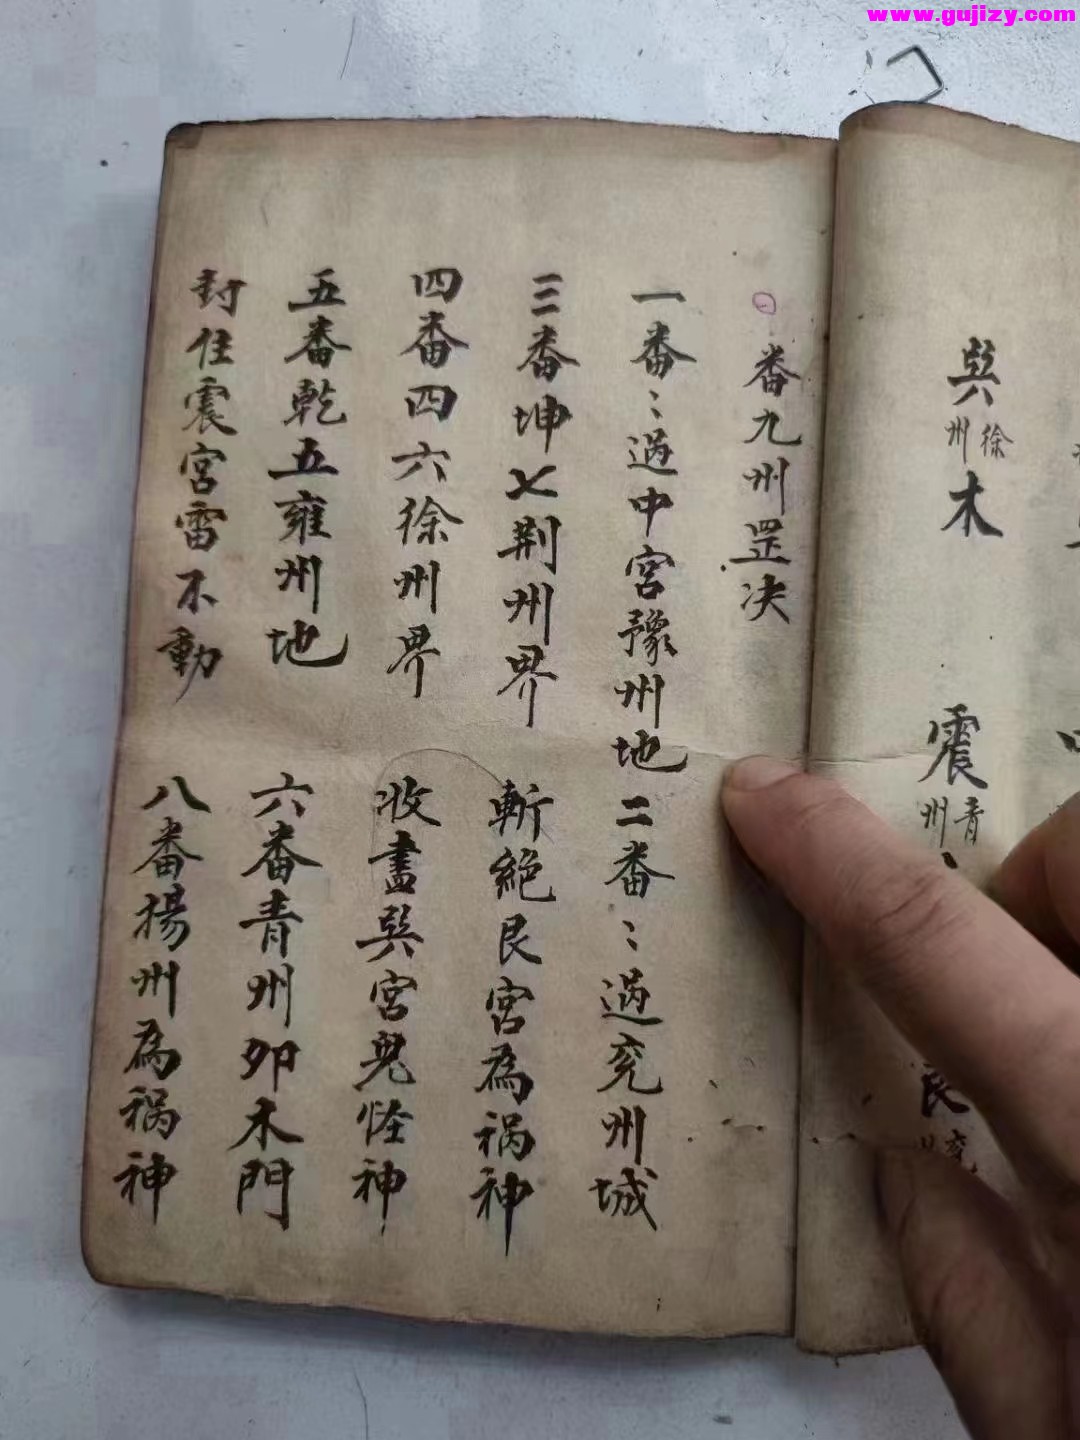 www.gujizy.com
巽 徐州 木
震 青州
艮
番九州罡决
一番〻過中宮豫州地 二番〻過兖州城
三番坤七荆州界 斬絕艮宮為祸神
四番四六徐州界 收盡巽宮鬼怪神
五番乾五雍州地 六番青州卯木門
封住震宮雷不動 八番揚州為祸神